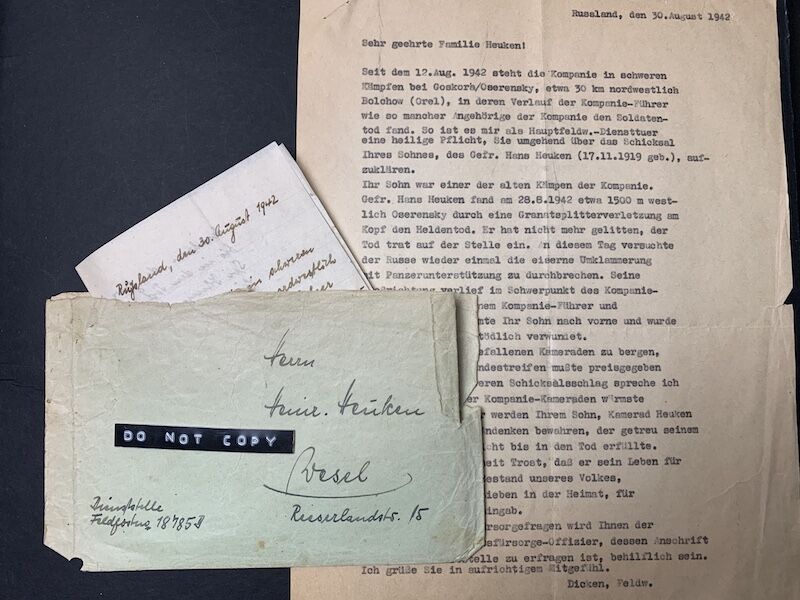 Russland, den 30.August 1942
Sehr geehrte Familie Heuken!
Seit dem 12.Aug. 1942 steht die Kompanie in schweren
Kämpfen bei Goskorb/Oserensky, etwa 30 km nordwestlich
Bolchow (Orel), in deren Verlauf der Kompanie-Führer
wie so mancher Angehörige der Kompanie den Soldaten-
tod fand. So ist es mir als Hauptfeldw.-Diensttuer
eine heilige Pflicht, Sie umgehend über das Schicksal
Ihres Sohnes, des Gefr. Hans Heuken (17.11.1919 geb.), auf-
zuklären.
Ihr Sohn war einer der alten Kämpen der Kompanie.
Gefr. Hans Heuken fand am 28.8.1942 etwa 1500 m west-
lich Oserensky durch eine Granatsplitterverletzung am
Kopf den Heldentod. Er hat nicht mehr gelitten, der
Tod trat auf der Stelle ein. An diesem Tag versuchte
der Russe wieder einmal die eiserne Umklammerung
mit Panzerunterstützung zu durchbrechen. Seine
richtung verlief im Schwerpunkt des Kompanie-
nem Kompanie-Führer und
mte Ihr Sohn nach vorne und wurde
tödlich verwundet.
efallenen Kameraden zu bergen,
ndestreifen mußte preisgegeben
eren Schicksalsschlag spreche ich
er Kompanie-Kameraden wärmste
r werden Ihrem Sohn, Kamerad Heuken
ndenken bewahren, der getreu seinem
cht bis in den Tod erfüllte.
eit Trost, daß er sein Leben für
estand unseres Volkes,
ieben in der Heimat, für
ingab.
rsorgefragen wird Ihnen der
efürsorge-Offizier, dessen Anschrift
stelle zu erfragen ist, behilflich sein.
Ich grüße Sie in aufrichtigem Mitgefühl.
Dicken, Feldw.
Rußland, den 30. August 1942
in schweren
nordwestlich
Herrn
Heinr. Heuken
Wesel
Rieserlandstr. 15
DO NOT COPY
Dienststelle
Feldpostnr. 18785 B